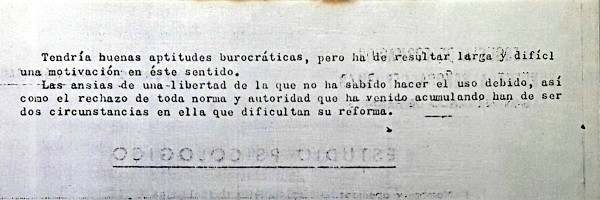 Tendría buenas aptitudes burocráticas, pero ha de resultar larga y difícl
una motivación en éste sentido.
Las ansias de una libertad de la que no ha sabido hacer el uso debido, así
como el rechazo de toda norma y autoridad que ha venido acumulando han de ser
dos circunstancias en ella que dificultan su reforma.
ESTUDIO PSICOLOGICO